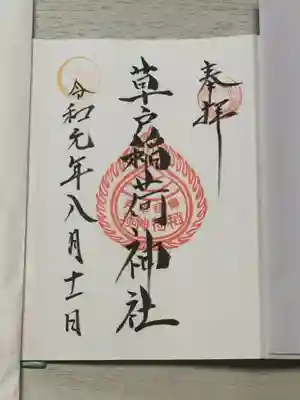 奉拝
草戸稲荷神社
令和元年八月十一日